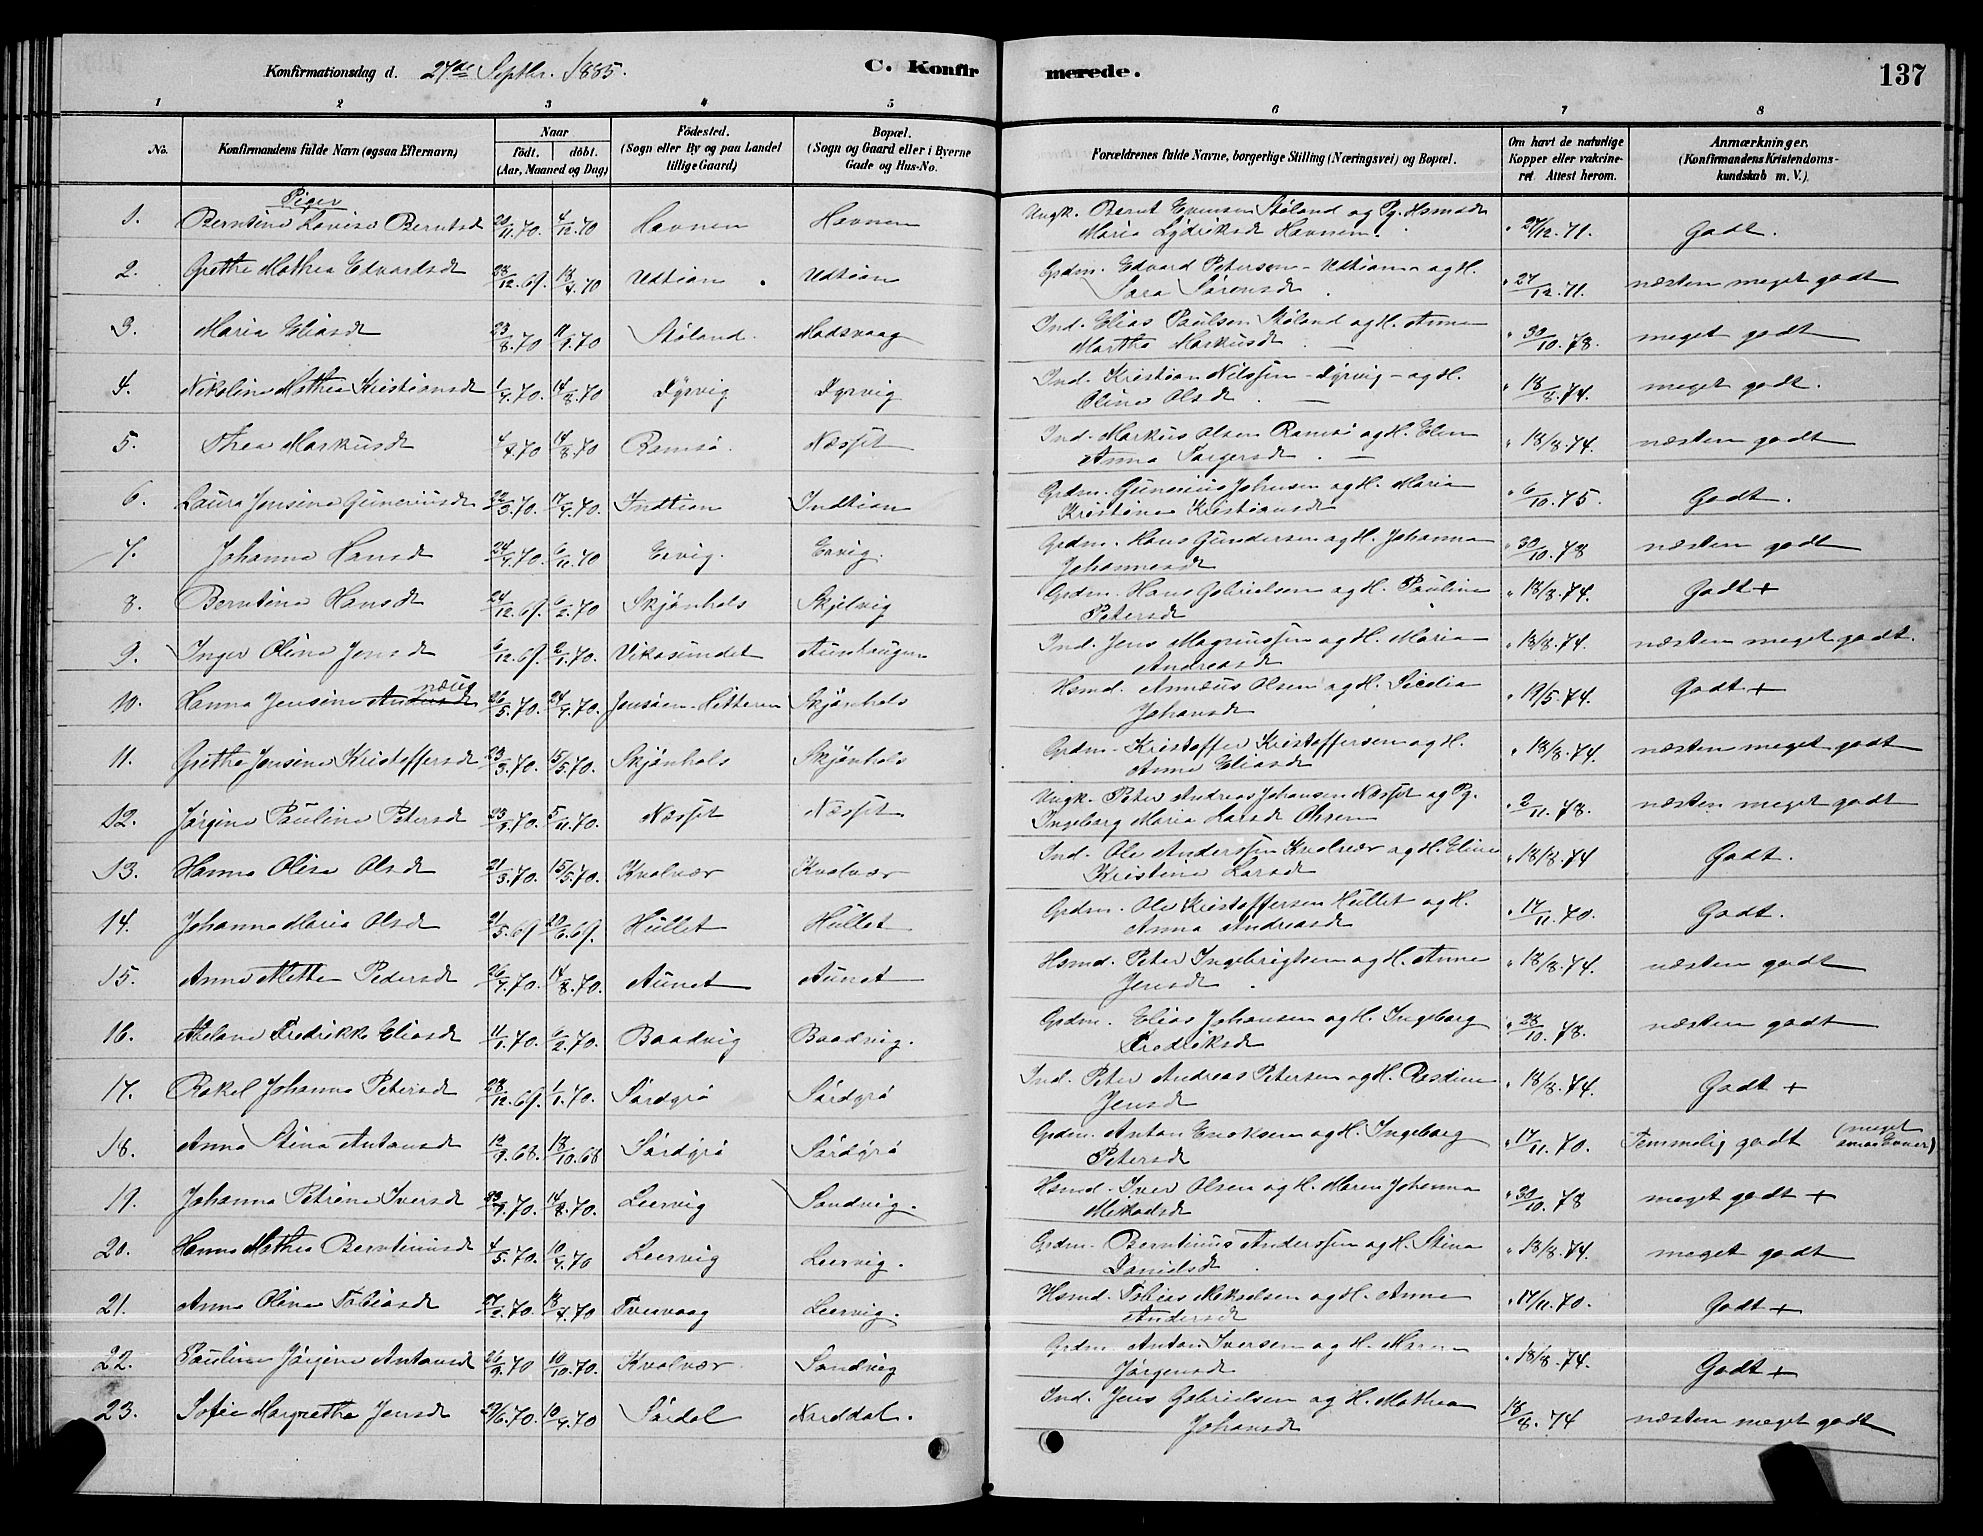 Konfirmationsdag d. 27de Septbr. 1885. C. Konfir merede. 137
1 2 3 4 5 6 7 8
No. Konfirmandens fulde Navn (ogsaa Efternavn) Naar født. døbt. (Aar, Maaned og Dag) Fødested. (Sogn eller By og paa Landet tillige Gaard) Bopæl. (Sogn og Gaard eller i Byerne Gade og Hus-No. Forældrenes fulde Navne, borgerlige Stilling (Næringsvei) og Bopæl. Om havt de naturlige Kopper eller vakcineret. Attest herom. Anmærkninger. (Konfirmandens Kristendomskundskab m. V.).
Piger
1. Berntine Lovise Berntsd 20/11.70. 4/12.70 Havnen Havnen Ungk. Bernt Evensen Støland og Pg. Hsmdsd Maria Lydriksd Havnen. " 27/12.71. Godt.
2. Grethe Mathea Edvardsd 28/12.69. 18/4.70 Udtian Udtian Grdm. Edvard Petersen - Udtian - og H. Sara Sørensd " 27/12.71. næsten meget godt
3. Maria Eliasd 23/8.70 11/9.70 Støland. Madsvaag Ind. Elias Paulsen Støland og H. Anna Martha Markusd — " 30/10.78. meget godt
4. Nikoline Mathea Kristiansd 1/7.70. 14/8.70 Dyrvig Dyrvig Ind. Kristian Nilssen - Dyrvig - og H. Oline Olsd — " 18/8.74. meget godt.
5. Thea Markusd 4/7.70 14/8.70 Ramsø. Næsset Ind. Markus Olsen Ramsø og H. Elen Anna Torgersd — " 18/8.74. næsten godt
6. Laura Jensine Guneriusd 22/3.70. 17/7.70. Indtian Indtian Grdm. Gunerius Johnsen og H. Maria Kristine Kristiansd " 6/10.75 Godt.
7. Johanna Hansd 24/7.70 6/11.70 Ervig. Ervig. Grdm. Hans Gundersen og H. Johanna Johannesd " 30/10.78 næsten godt
8. Berntine Hansd 24/12.69. 6/2.70 Skjønhals Skjelvig Grdm. Hans Gabrielsen og H. Pauline Petersd " 18/8.74. Godt +
9. Inger Oline Jensd 6/12.69. 6/1.70. Vikasundet Aunhaugen Ind. Jens Magnussen og H. Maria Andreasd " 18/8.74. næsten meget godt.
10. Hanna Jensine Annæusd 26/5.70. 24/7.70. Jensøen - Hitteren Skjønhals Hsmd. Annæus Olsen og H. Sicelia Johansd " 19/5.74. Godt +
11. Grethe Jensine Kristoffersd 23/3.70. 15/5.70. Skjønhals Skjønhals Grdm. Kristoffer Kristoffersen og H. Anna Eliasd " 18/8.74. næsten meget godt
12. Jørgine Pauline Petersd 23/9.70. 5/11.70. Næsset Næsset Ungk. Peter Andreas Johansen Næsset og Pg. Ingeborg Maria Larsd Ohsen " 2/11.78. næsten meget godt
13. Hanna Olise Olsd 21/3.70. 15/5.70. Kvalvær Kvalvær Ind. Ole Anderssen Kvalvær og H. Eline Kristine Larsd " 18/8.74 Godt.
14. Johanna Maria Olsd 21/5.69 20/6.69. Hullet Hullet Grdm. Ole Kristoffersen Hullet og H. Anna Andreasd " 17/11.70. Godt.
15. Anne Mette Pedersd 26/7.70. 14/8.70. Aunet Aunet Hsmd. Peter Ingebrigtsen og H. Anne Jensd " 18/8.74. næsten godt
16. Abelone Fredrikke Eliasd 11/1.70. 6/2.70. Baadvig Baadvig. Grdm. Elias Johansen og H. Ingeborg Fredriksd " 28/10.78. næsten godt
17. Rakel Johanna Petersd 28/12.69. 1/1.70. Sørdyrø Sørdyrø Ind. Peter Andreas Petersen og H. Rasdine Jensd " 18/8.74. Godt +
18. Anna Stina Antonsd 19/9.68. 18/10.68 Sørdyrø Sørdyrø Grdm. Anton Eriksen og H. Ingeborg Petersd " 17/11.70. Temmelig godt (meget smaa Evner)
19. Johanna Petrine Iversd 23/7.70. 14/8.70. Leervig Sandvig. Hsmd. Iver Olsen og H. Maren Johanna Mikalsd " 30/10.78 meget godt +
20. Hanna Mathea Berntinusd 4/5.70. 10/7.70 Leervig Leervig. Grdm. Berntinus Anderssen og H. Stina Danielsd " 18/8.74. meget godt
21. Anna Oline Tobiasd 27/2.70. 18/4.70 Tvervaag Leervig. Hsmd. Tobias Mikelsen og H. Anna Andersd " 17/11.70. Godt +
22. Pauline Jørgine Antonsd 26/9.70 10/10.70. Kvalvær Sandvig Grdm. Anton Iversen og H. Maren Jørgensd " 18/8.74. Godt +
23. Sofie Margrethe Jensd 2/6.70. 10/7.70 Sørdal Norddal. Ind. Jens Gabrielsen og H. Mathea Johansd 18/8.74 næsten meget godt